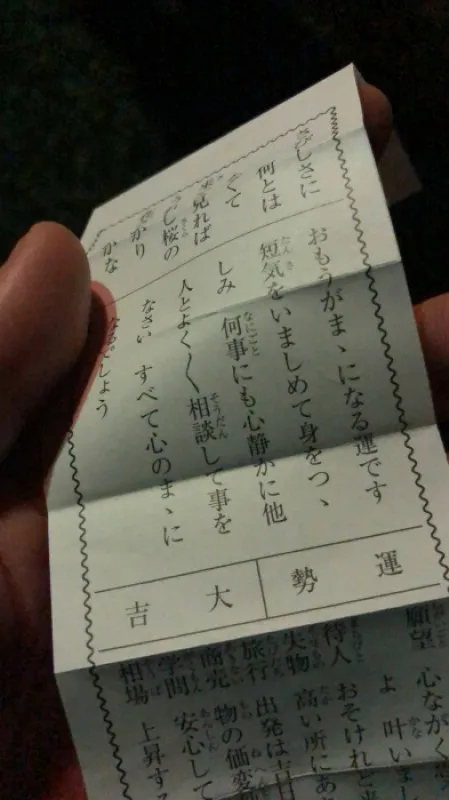 さびしさに
何とは
くて
見れば
し桜の
かり
かな
おもうがまゝになる運です
短気をいましめて身をつゝ
しみ 何事にも心静かに他
人とよく〱相談して事を
なさい すべて心のまゝに
なるでしょう
運勢
大吉
願望 心ながく
よ 叶いまし
待人 おそけれど
失物 高い所にあ
旅行 出発は吉日
商売 物の価変
学問 安心して
相場 上昇す